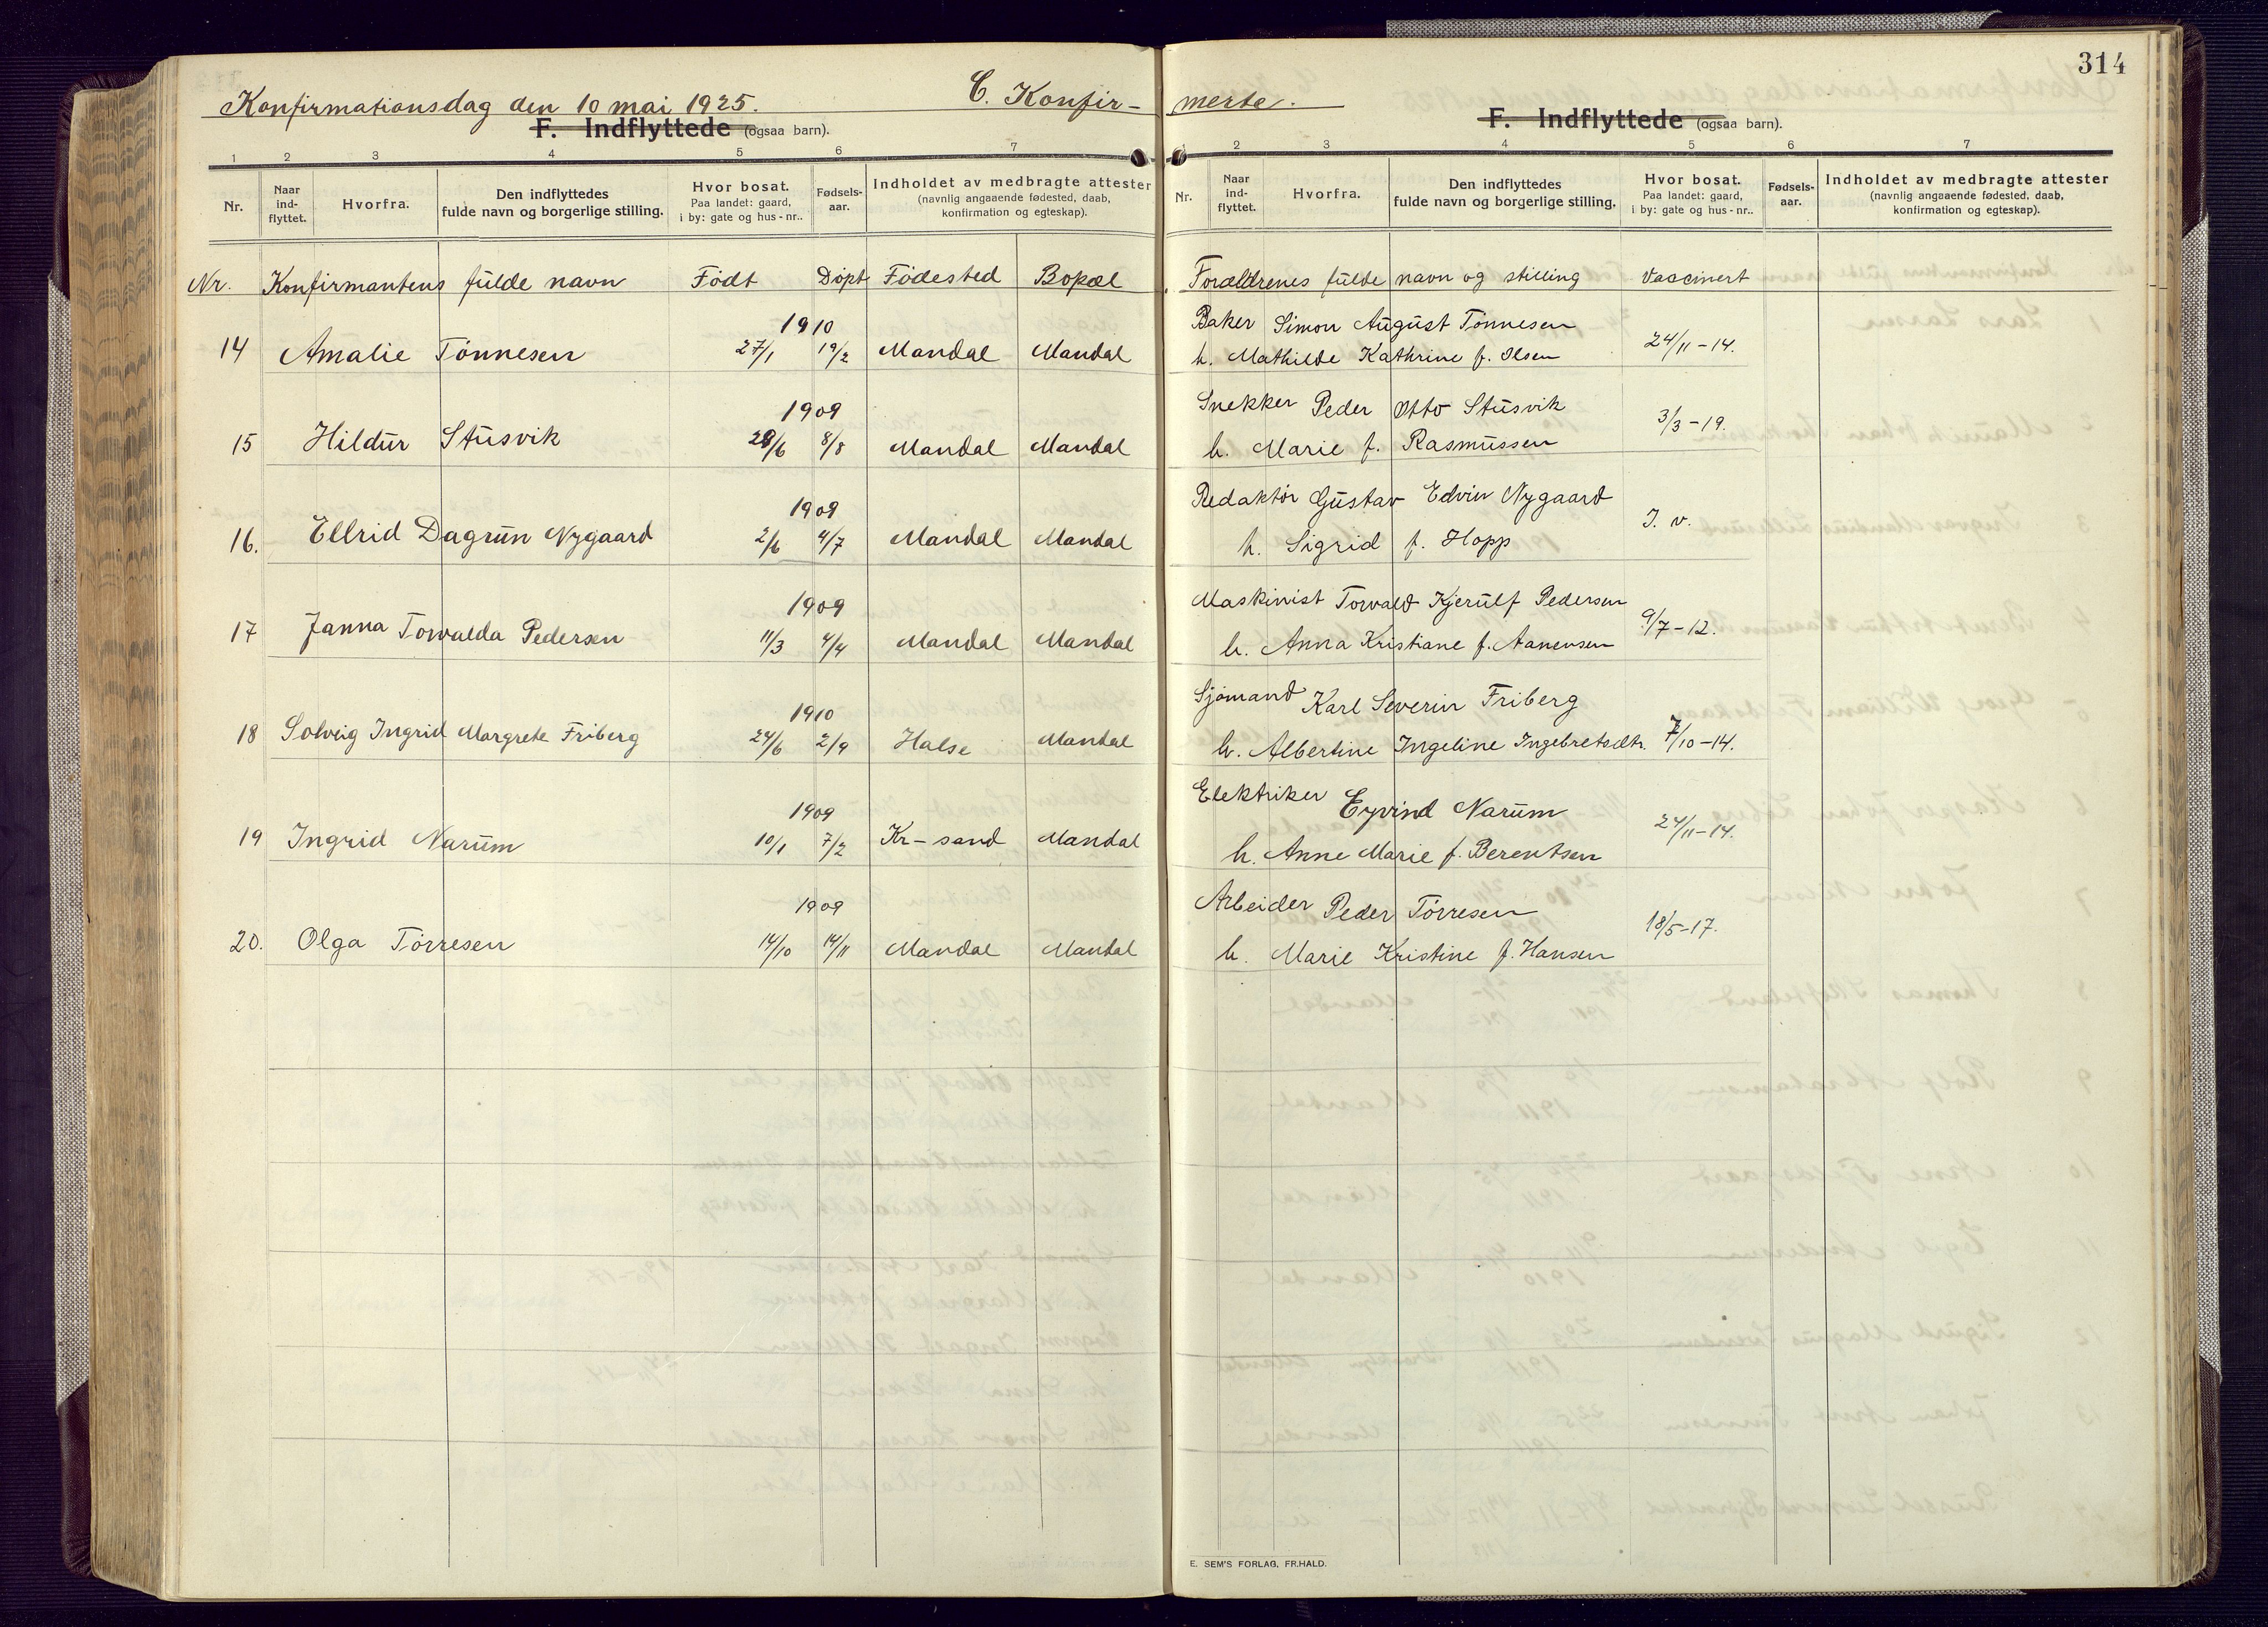 314
Konfirmationsdag den 10 mai 1925. C. Konfir- merte.
F. Indflyttede (ogsaa barn). F. Indflyttede (ogsaa barn).
1 2 3 4 5 6 7 1 2 3 4 5 6 7
Nr. Naar ind-flyttet. Hvorfra. Den indflyttedes fulde navn og borgerlige stilling. Hvor bosat. Paa landet: gaard, i by: gate og hus-nr.. Fødsels-aar. Indholdet av medbragte attester (navnlig angaaende fødested, daab, konfirmation og egteskap).
Nr. Naar ind-flyttet. Hvorfra. Den indflyttedes fulde navn og borgerlige stilling. Hvor bosat. Paa landet: gaard, i by: gate og hus-nr.. Fødsels-aar. Indholdet av medbragte attester (navnlig angaaende fødested, daab, konfirmation og egteskap).
Nr. Konfirmantens fulde navn Født Døpt Fødested Bopæl Forældrenes fulde navn og stilling Vaccinert
1910 Baker Simon August Tønnesen
14 Amalie Tønnesen 27/1 19/2 Mandal Mandal h. Mathilde Kathrine f. Olsen 24/11-14.
1909 Snekker Peder Otto Stusvik
15 Hildur Stusvik 28/6 8/8 Mandal Mandal h. Marie f. Rasmussen 3/3-19.
1909 Redaktør Gustav Edvin Nygaard
16. Ellrid Dagrun Nygaard 2/6 4/7 Mandal Mandal h. Sigrid f. Hopp I. v.
1909 Maskinist Torvald Kjerulf Pedersen
17 Janna Torvalda Pedersen 11/3 4/4 Mandal Mandal h. Anna Kristiane f. Aanensen 9/7-12.
1910 Sjømand Karl Severin Friberg
18 Solveig Ingrid Margrete Friberg 24/6 2/9 Halse Mandal h. Albertine Ingeline Ingebretsdtr. 7/10-14.
1909 Elektriker Eyvind Narum
19 Ingrid Narum 10/1 7/2 Kr-sand Mandal h. Anne Marie f. Berentsen 24/11-14.
1909 Arbeider Peder Tørresen
20. Olga Tørresen 14/10 14/11 Mandal Mandal h. Marie Kristine f. Hansen 18/5-17.
E. SEM'S FORLAG, FR.HALD.